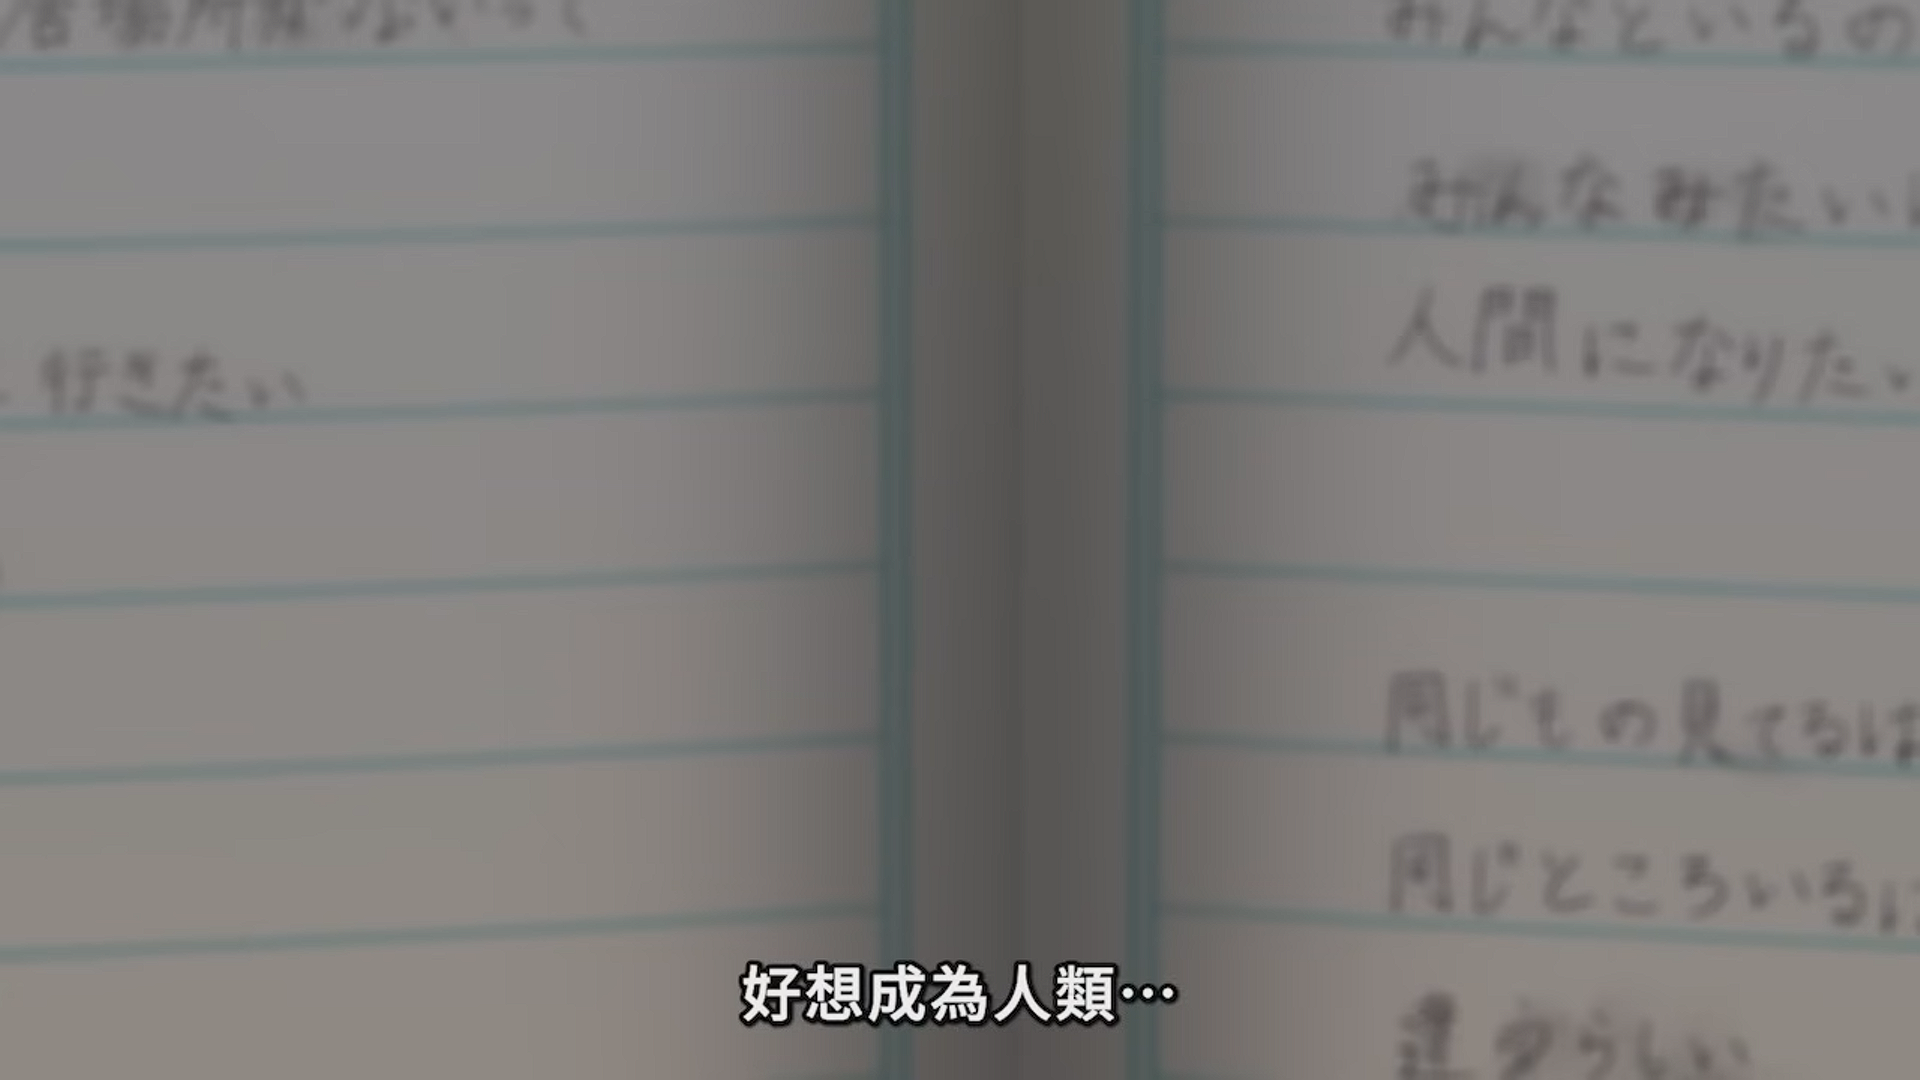 居場所はないって
行きたい
みんなといるの
みんなみたいに
人間になりたい
同じもの見てるは
同じところいるは
違うらしい
好想成為人類…